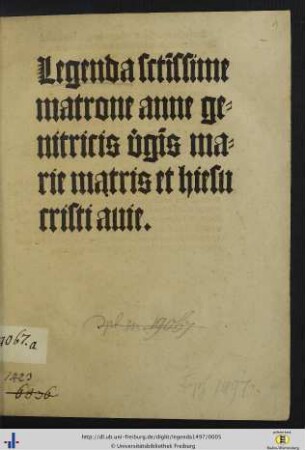 Legenda sctissime
matrone anne ge-
nitricis v̾gis ma-
rie matris et hiesu
cristi auie.
9067.a
1423
6836
1497
http://dl.ub.uni-freiburg.de/diglit/legenda1497/0005
© Universitätsbibliothek Freiburg